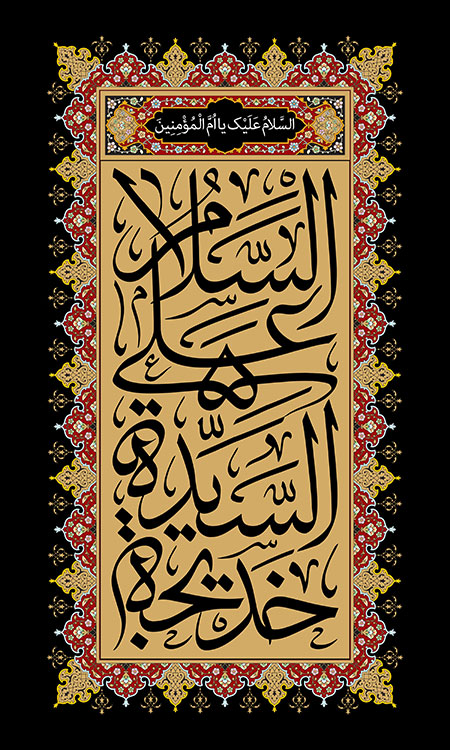 السَّلامُ عَلَیْکَ یا اُمَّ الْمُؤْمِنِینَ
السَّلام
علی
السَّیِّدة
خدیجة